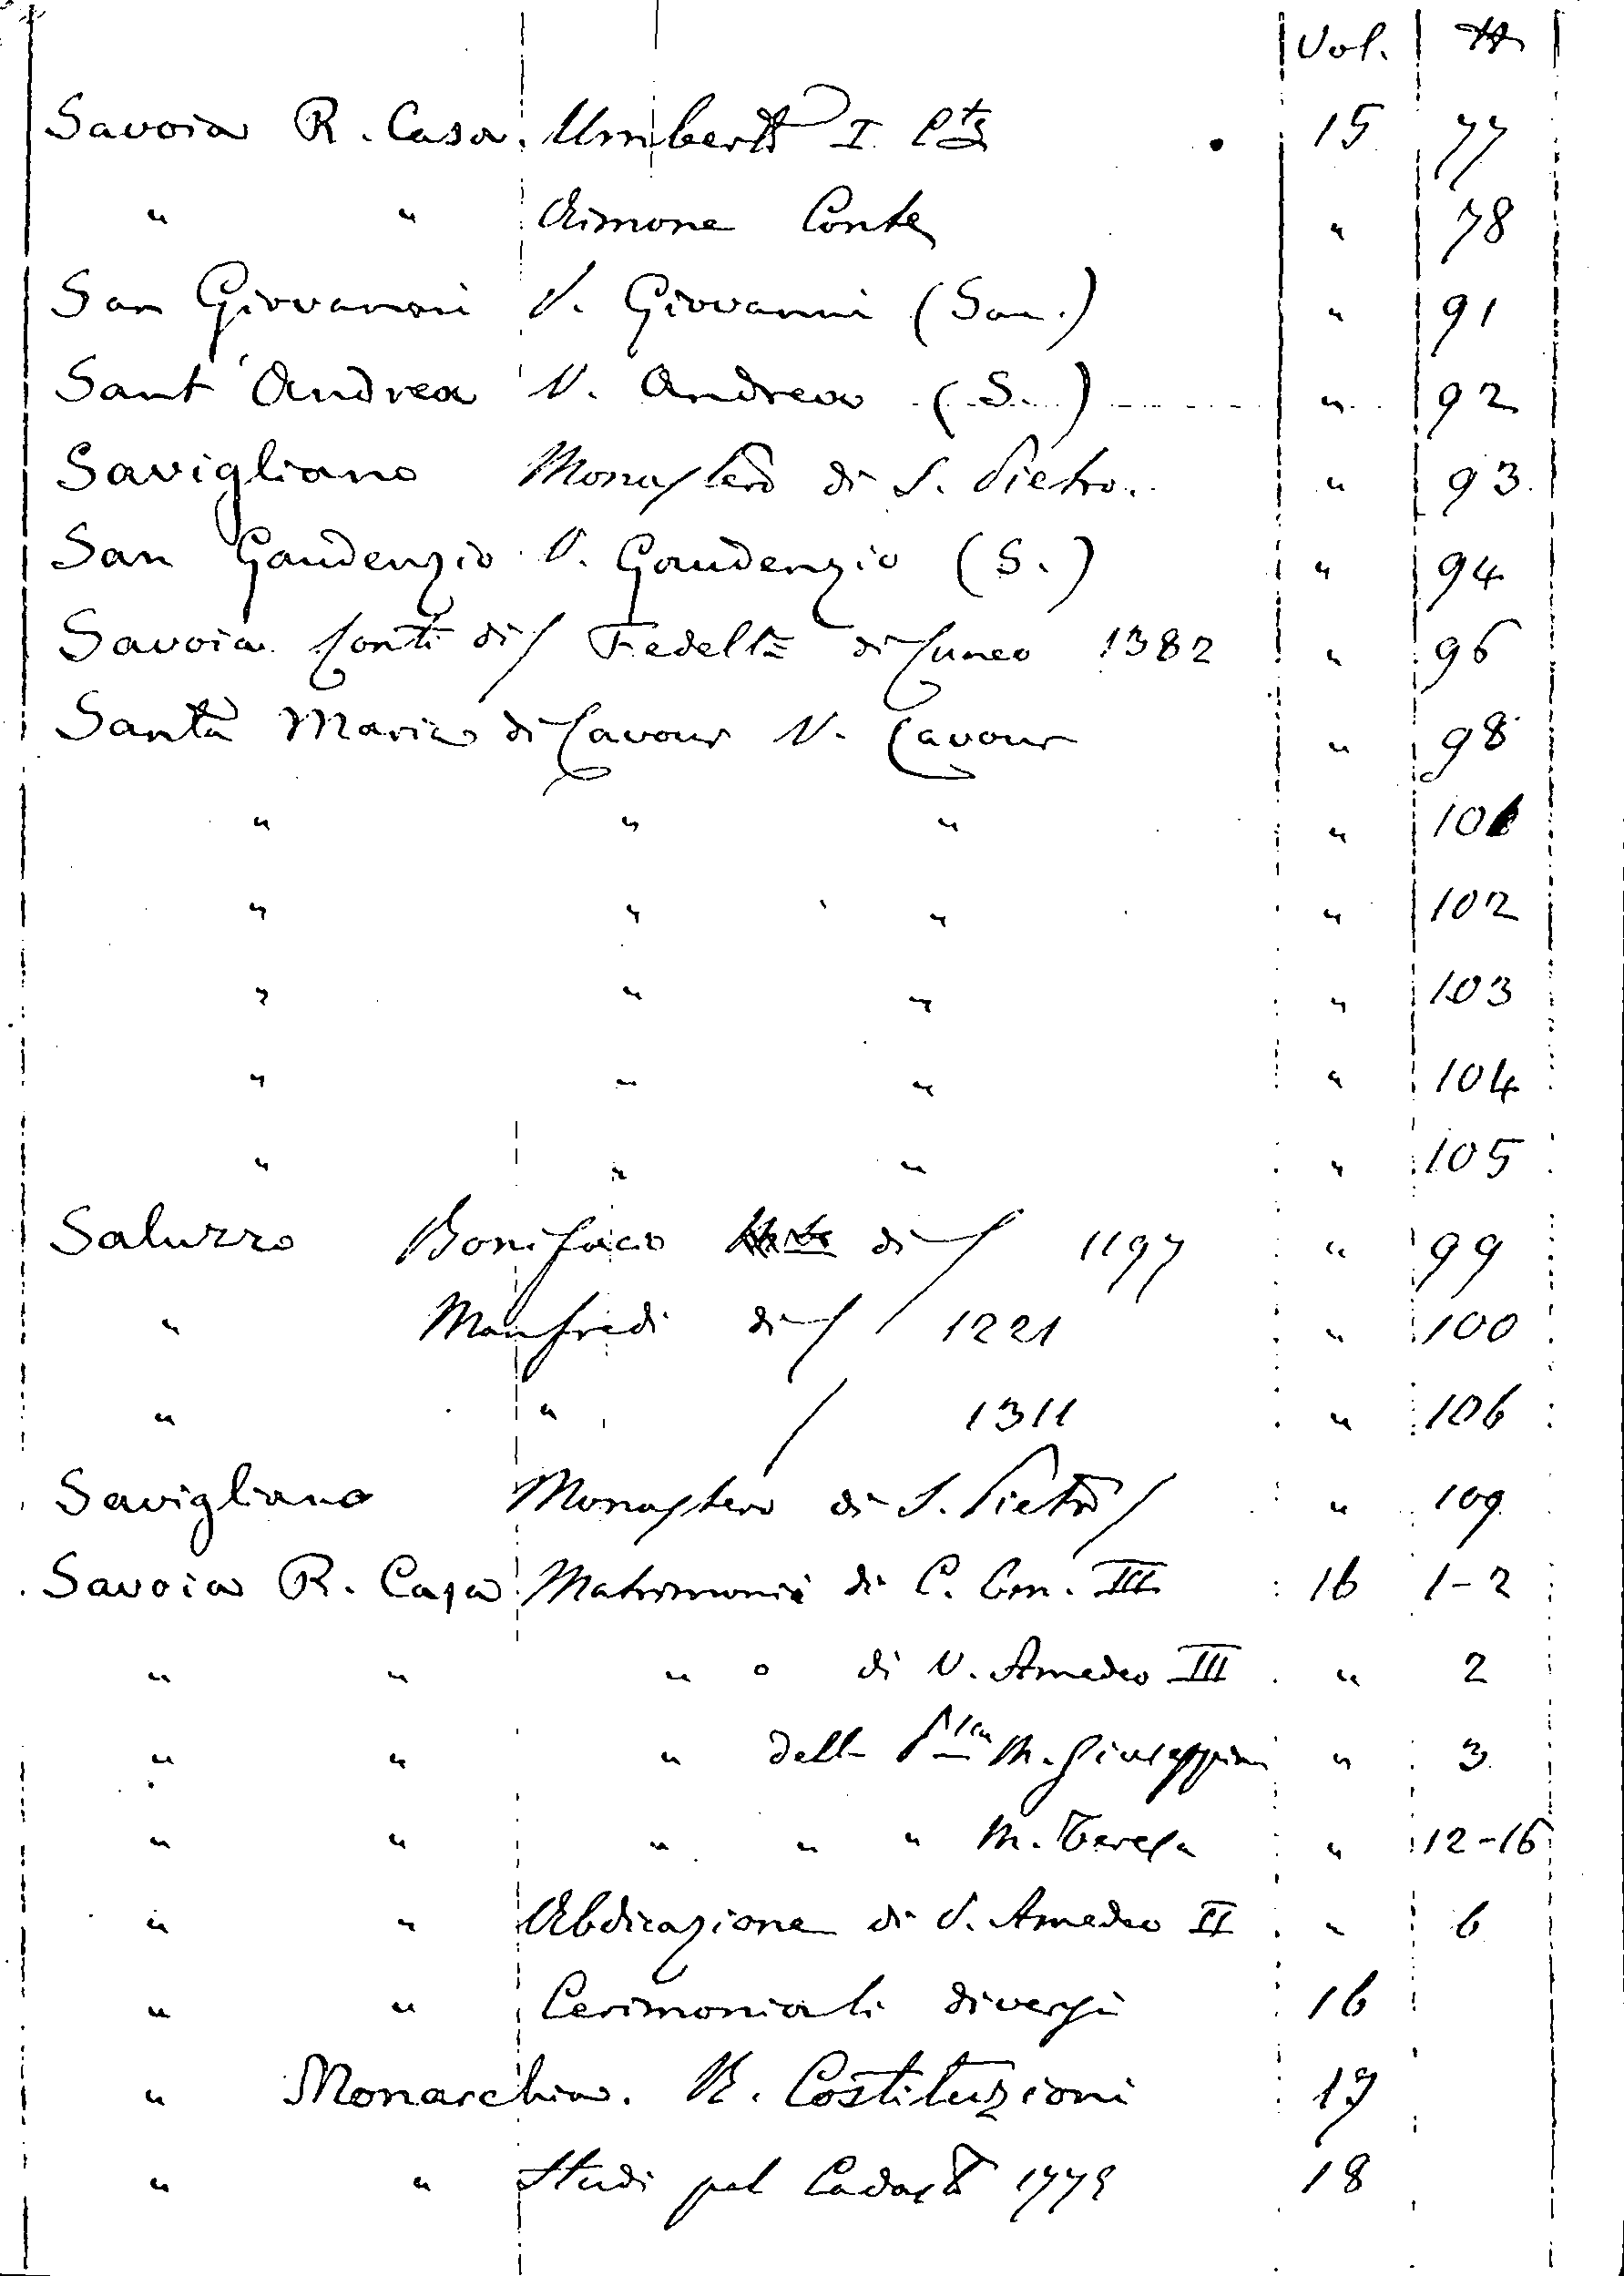 Vol. №
Savoia R. Casa. Umberto I. Cte 15 77
" " Aimone Conte " 78
San Giovanni V. Giovanni (San.) " 91
Sant'Andrea V. Andrea (S.) " 92
Savigliano Monastero di S. Pietro. " 93
San Gaudenzio V. Gaudenzio (S.) " 94
Savoia Conti di / Fedeltà di Cuneo 1382 " 96
Santa Maria di Cavour V. Cavour " 98
" " " " 101
" " " " 102
" " " " 103
" " " " 104
" " " " 105
Saluzzo Bonifacio di / 1197 " 99
" Manfredi di / 1221 " 100
" " / 1311 " 106
Savigliano Monastero di S. Pietro / " 109
Savoia R. Casa Matrimonii di C. Em. III 16 1-2
" " " o di V. Amedeo III " 2
" " " della M. Giuseppina " 3
" " " " " M. Teresa " 12-16
" " Abdicazione di V. Amedeo II " 6
" " Cerimoniali diversi 16
" Monarchia. V. Costituzioni 17
" " Studi pel Catasto 18